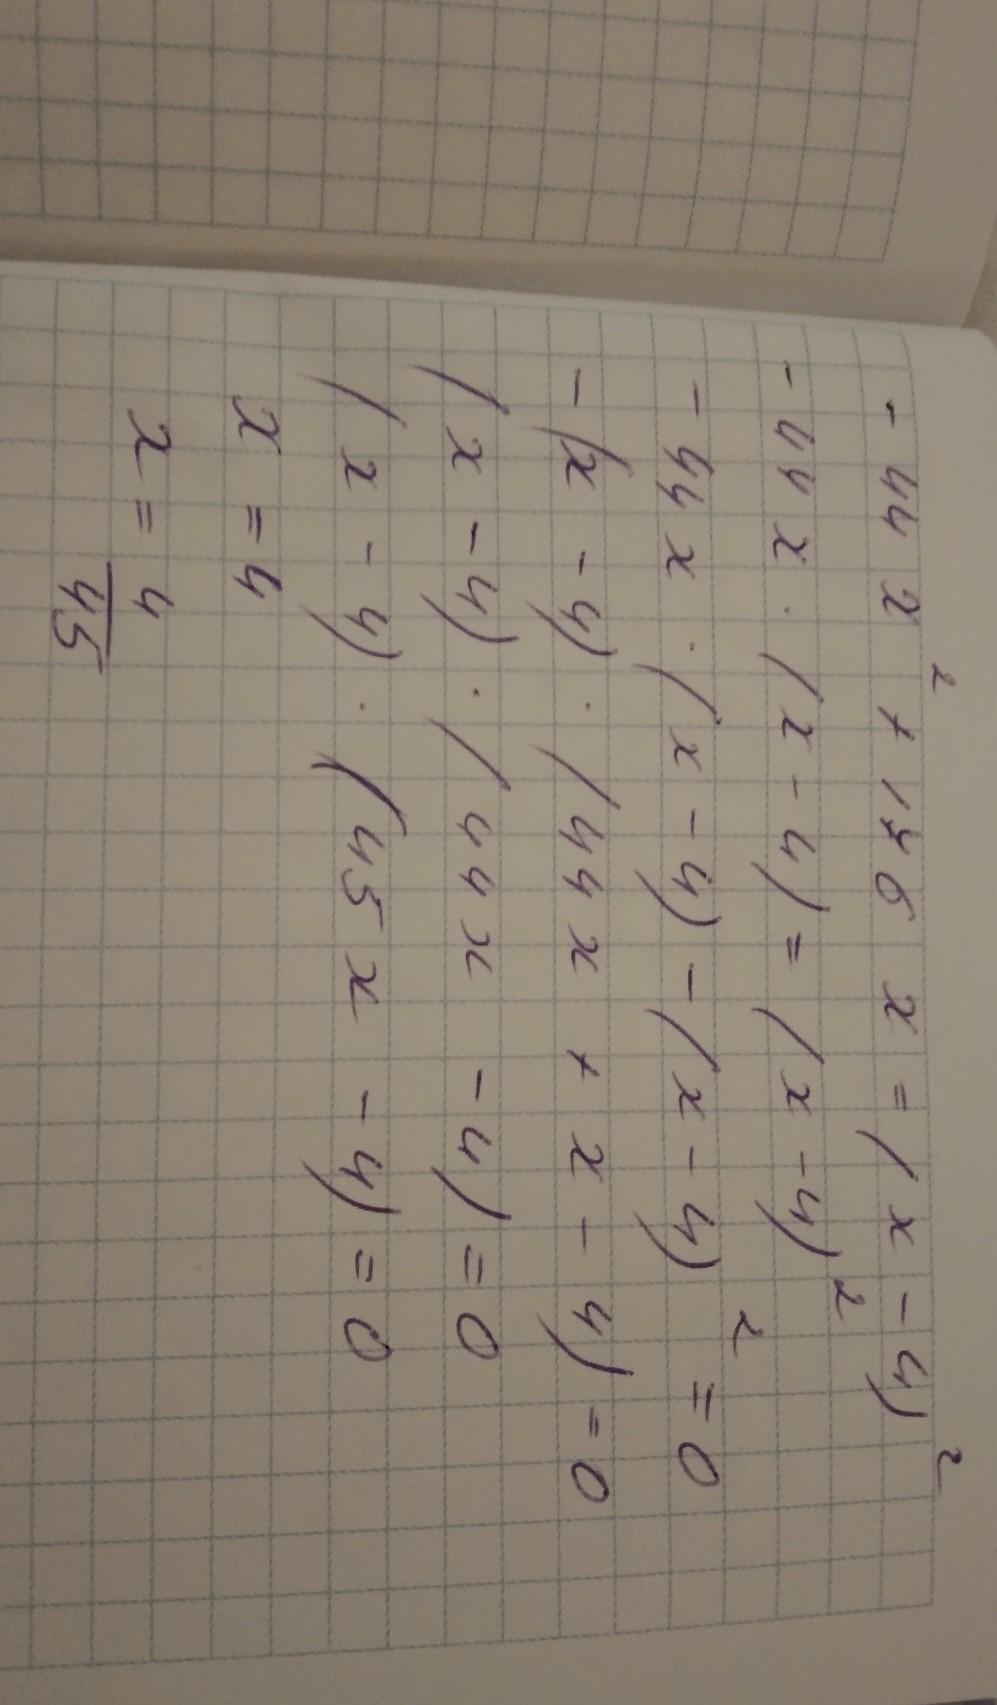 - 44 x² + 176 x = (x - 4)²
- 44 x · (x - 4) = (x - 4)²
- 44 x · (x - 4) - (x - 4)² = 0
- (x - 4) · (44 x + x - 4) = 0
(x - 4) · (44 x - 4) = 0
(x - 4) · (45 x - 4) = 0
x = 4
x = 4/45